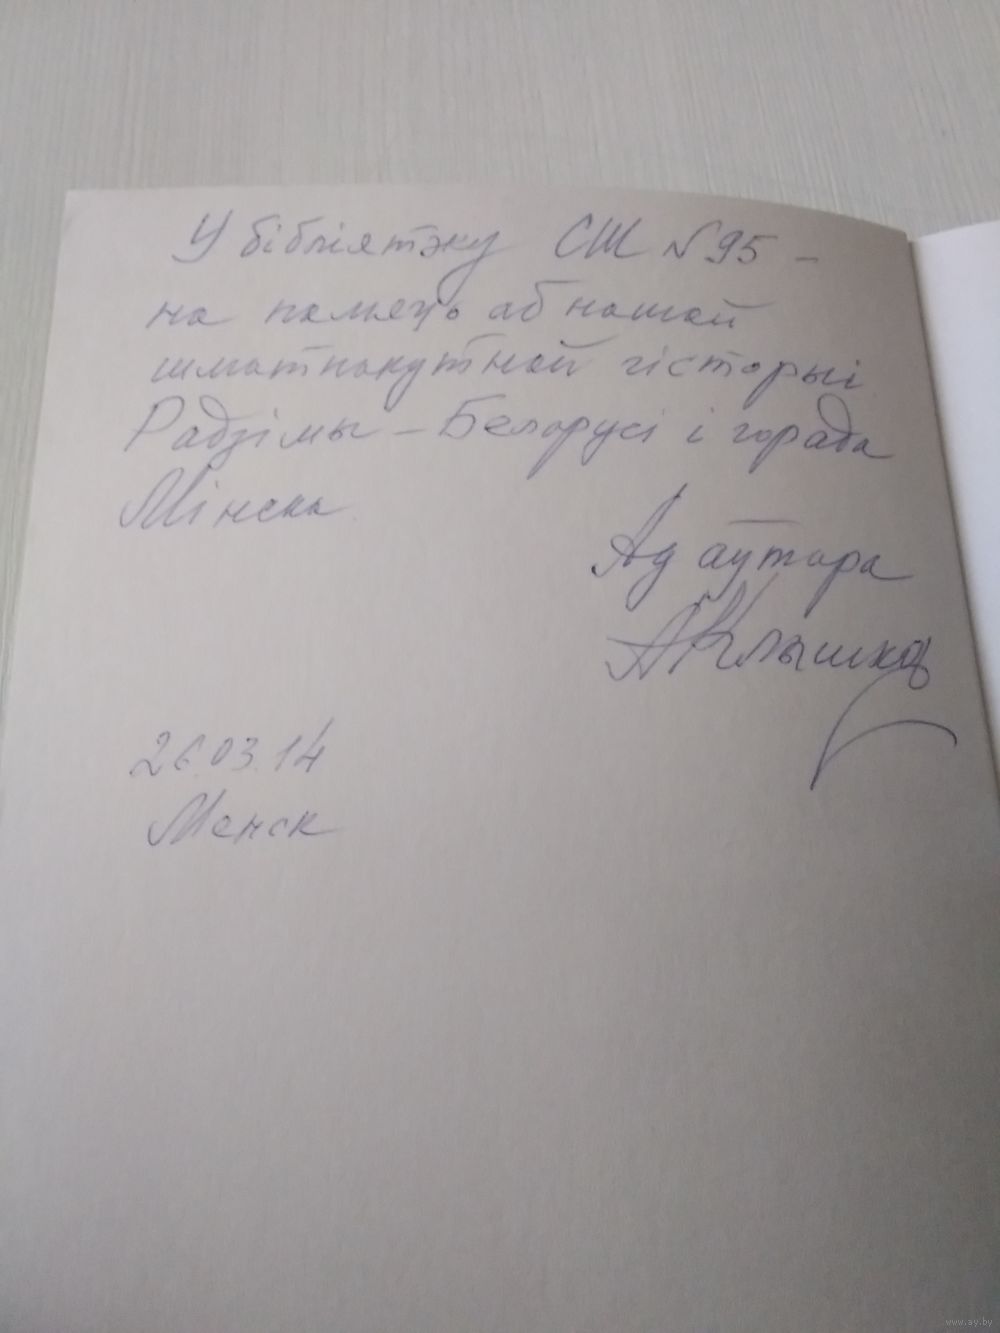 У бібліятэку СШ №95 –
на памяць аб нашай
шматпакутнай гісторыі
Радзімы – Беларусі і горада
Мінска
Ад аўтара
АКлышка
26.03.14
Менск
www.ay.by